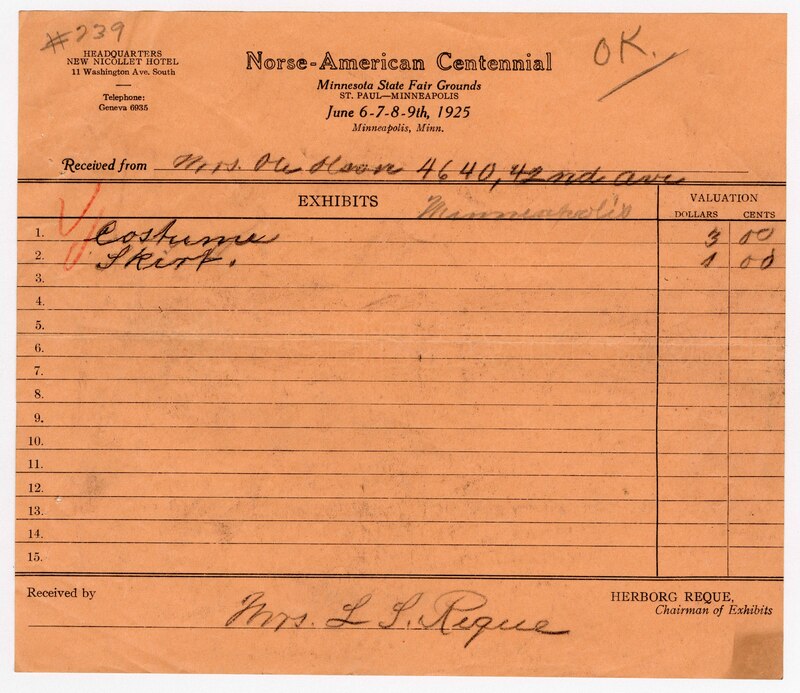 #239
HEADQUARTERS
NEW NICOLLET HOTEL
11 Washington Ave. South
Telephone:
Geneva 6935
Norse-American Centennial
Minnesota State Fair Grounds
ST. PAUL—MINNEAPOLIS
June 6-7-8-9th, 1925
Minneapolis, Minn.
OK.
Received from Mrs. Ole Olson 4640, 42nd Ave
Minneapolis
EXHIBITS VALUATION
DOLLARS CENTS
1. Costume 3 00
2. Skirt. 1 00
3.
4.
5.
6.
7.
8.
9.
10.
11.
12.
13.
14.
15.
Received by Mrs. L S. Reque
HERBORG REQUE,
Chairman of Exhibits